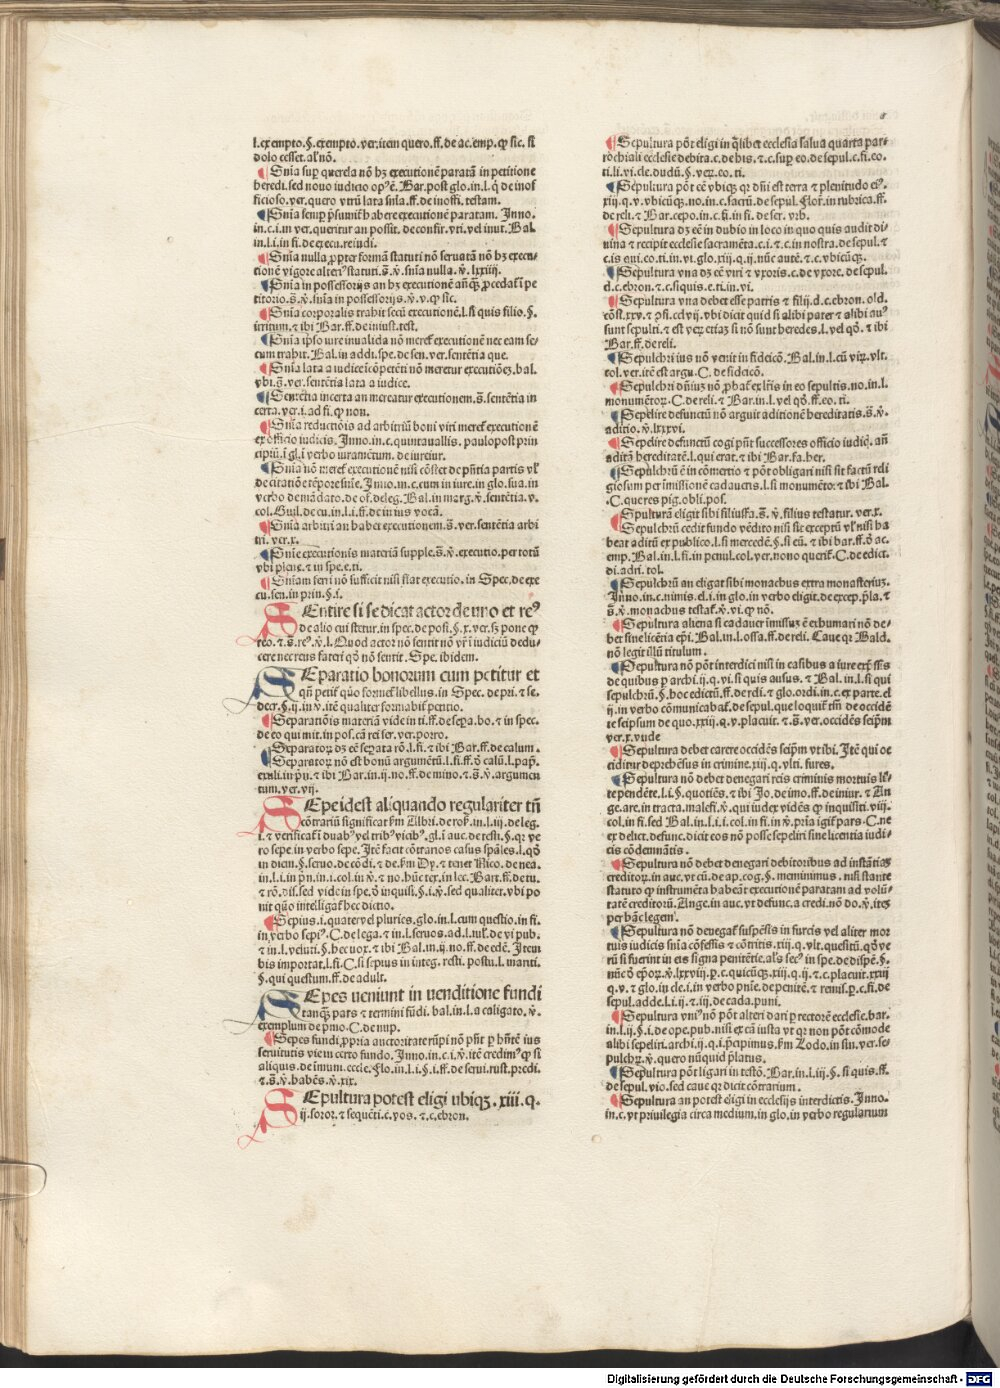 l.exempto.§.exempto.ver.item quero.ff.de ac.emp.qꝫ sic.si
dolo esset.al' nō.
¶Snīa sup querela nō hꝫ executionē paratā in petitione
heredi.sed nouo iudicio op'ꝫ. Bar.post glo.in.l.q de inof
ficioso.ver.quero vtrū lata snīa.ff.de inoffi.testam.
¶Snīa semp p̄sumit' habere executionē paratam. Inno.
in.c.i.in ver.queritur an possit.de confir.vti.vel inut. Bal.
in.l.i.in fi.de execu.rei iudi.
¶Snīa nulla ꝓpter formā statuti nō seruatā nō hꝫ execu-
tionē vigore alteri' statuti.s̄.v̄.snīa nulla.v̄.lxxiiij.
¶Snīa in possessorijs an hꝫ executionē añqꝫ ꝓcedat' i pe
titorio.s̄.v̄.snīa in possessorijs.v̄.v.qꝫ sic.
¶Snīa corporalis trahit secū executionē.l.si quis filio.§.
irritum.⁊ ibi Bar.ff.de iniust.test.
¶Snīa ipso iure inualida nō meret' executionē nec eam se-
cum trahit. Bal.in addi.spe.de sen.ver.sentētia que.
¶Snīa lata a iudice īcōpetēti nō meretur executiōeꝫ.bal.
vbi.s̄.ver.sentētia lata a iudice.
¶Sentētia incerta an mereatur executionem.s̄.sentētia in
certa.ver.i.ad fi.qꝫ non.
¶Snīa reductionis ad arbitriū boni viri meret' executionē
ex officio iudicis. Inno.in.c.quintauallis. paulo post prin
cipiū.i gl.i verbo iuramētum.de iureiur.
¶Snīa nō meret' executionē nisi cōstet de p̄ntia partis vl'
de citatione tēpore snīe. Inno.in.c.cum in iure.in glo.sua.in
verbo de mādato.de of.deleg. Bal.in marg.v̄.sentētia.v.
col. Guil.de cu.in.l.i.ff.de in ius vocā.
¶Snīa arbitri an habet executionem.s̄.ver.sentētia arbi
tri.ver.x.
¶Snīe executionis materiā supple.s̄.v̄.executio.per totū
vbi plene.⁊ in spe.e.ti.
¶Snīam ferri nō sufficit nisi fiat executio.in Spec.de exe
cu.sen.in prin.§.i.
SEntire si se dicat actor de vno et re'
de alio cui stetur.in spec.de posi.§.x.ver.sꝫ pone qꝫ
reo.⁊.s̄.re'.v̄.l. Quod actor nō sentit nō vr̄ i iudiciū dedu-
cere nec reus fateri qd' nō sentit. Spe.ibidem.
SEparatio bonorum cum petitur et
qn̄ petit' qūo format' libellus.in Spec.de pri.⁊ se.
decr.§.ij.in v̄.itē qualiter formabit' petitio.
¶Separatiōis materiā vide in ti.ff.de sepa.bo.⁊ in spec.
de eo qui mit.in pos.cā rei ser.ver.porro.
¶Separatoꝝ dꝫ eē seꝑata rō.l.fi.⁊ ibi Bar.ff.de calum.
¶Separatoꝝ nō est bonū argumētū.l.fi.ff.d' calū.l.pap.
exuli.in pn̄.⁊ ibi Bar.in.ij.no.ff.de mino.⁊.s̄.v̄.argumen
tum.ver.vij.
SEpe idest aliquando regulariter tn̄
cōtrariū significat sm̄ Albri.de ros'.in.l.iij.de leg.
i.⁊ verificat' i duab' vel trib' vicib'.gl.i auc.de testi.§.qr ve
ro sepe.in verbo sepe. Itē facit cōtrarios casus spāles.l.qd'
in diem.§.seruo.de cōdi.⁊ de.sm̄ Dy.⁊ tenet Rico.de nea.
in.l.i.in pn̄.in.i.col.in v̄.⁊ no.hūc ter.in lec. Bart.ff.de tu.
⁊ rō.dis.sed vide in spe.d' inquisi.§.i.v̄.sed qualiter.vbi po
nit qūo intelligat' hec dictio.
¶Sepius.i.quater vel pluries.glo.in.l.cum questio.in fi.
in verbo sepi'. C.de lega.⁊ in.l.seruos.ad.l.iul'.de vi pub.
⁊ in.l.veluti.§.hec uox.⁊ ibi Bal.in.ij.no.ff.de edē. Item
bis importat.l.fi. C.si sepius in integ.resti.postu.l.mariti.
§.qui questum.ff.de adult.
SEpes ueniunt in venditione fundi
tanqꝫ pars ⁊ termini fūdi.bal.in.l.a caligato.v̄.
exemplum de p̄mo. C.de nup.
¶Sepes fundi ꝓpria auctoritate rūpi nō pn̄t p hn̄tē ius
seruitutis vie in certo fundo. Inno.in.c.i.v̄.itē credim' qꝫ si
aliquis.de immu.eccle. Flo.in.l.i.§.i.ff.de serui.rust.predi.
⁊.s̄.v̄.habēs.v̄.xix.
SEpultura potest eligi ubiqꝫ.xiii.q.
ij.soror.⁊ sequēti.c.vos.⁊.c.ebron.
¶Sepultura pōt eligi in qlibet ecclesia salua quarta par-
rochiali ecclesie debita.c.de his.⁊.c.sup eo.de sepul.c.fi.eo.
ti.li.vi.cle.dudū.§.veꝝ.eo.ti.
¶Sepultura pōt eē vbiqꝫ qr dn̄i est terra ⁊ plenitudo ei'.
xiij.q.v.vbicūqꝫ.no.in.c.sacrū.de sepul. Flor.in rubrica.ff.
de reli.⁊ Bar.cepo.in.c.fi.in fi.de ser.vrb.
¶Sepultura dꝫ eē in dubio in loco in quo quis audit di-
uina ⁊ recipit ecclesie sacramēta.c.i.⁊.c.in nostra.de sepul.⁊
c.is qui.eo.ti.in.vi.glo.xiij.q.ij.nūc autē.⁊.c.vbicūqꝫ.
¶Sepultura vna dꝫ eē viri ⁊ vxoris.c.de vxore.de sepul.
d.c.ebron.⁊.c.si quis.e.ti.in.vi.
¶Sepultura vna debet esse patris ⁊ filij.d.c.ebron.old.
cōs̄.xxv.⁊ ꝯsi.cclvij.vbi dicit quid si alibi pater ⁊ alibi au'
sunt sepulti.⁊ est veꝝ etiaꝫ si nō sunt heredes.l.vel qd'.⁊ ibi
Bar.ff.de reli.
¶Sepulchri ius nō venit in fideicō. Bal.in.l.cū virꝫ.vlt.
col.ver.itē est argu. C.de fideicō.
¶Sepulchri dn̄iuꝫ nō ꝓbat' ex lr̄is in eo sepultis.no.in.l.
monumētoꝝ. C.de reli.⁊ Bar.in.l.vel qd'.ff.eo.ti.
¶Sepelire defunctū nō arguit aditionē hereditatis.s̄.v̄.
aditio.v̄.lxxxvi.
¶Sepelire defunctū cogi pn̄t successores officio iudic'.añ
aditā hereditatē.l.qui erat.⁊ ibi Bar.fa.her.
¶Sepulchrū ē in cōmertio ⁊ pōt obligari nisi sit factū reli
giosum per imissionē cadaueris.l.si monumēto.⁊ ibi Bal.
C.que res pig.obli.pos.
¶Spulturā eligit sibi filiusfa.s̄.v̄.filius testatur.ver.x.
¶Sepulchrū cedit fundo vēdito nisi sit exceptū vl' nisi ha
beat aditū ex publico.l.si mercedē.§.si eū.⁊ ibi bar.ff.d' ac.
emp. Bal.in.l.fi.in penul.col.ver.nono querit'. C.de edict.
di.adri.tol.
¶Sepulchrū an eligat sibi monachus extra monasteriuꝫ.
Inno.in.c.nimis.el.i.in glo.in verbo eligit.de excep.pla.⁊
s̄.v̄.monachus testat'.v̄.vi.qꝫ nō.
¶Sepultura aliena si cadauer imissuꝫ ē exhumari nō de-
bet sine licētia epi. Bal.in.l.ossa.ff.de reli. Caue qr Bald.
nō legit illū titulum.
¶Sepultura nō pōt interdici nisi in casibus a iure exp̄ssis
de quibus p archi.ij.q.vi.si quis ausus.⁊ Bal.in.l.si qui
sepulchrū.§.hoc edictū.ff.de reli.⁊ glo.ordi.in.c.ex parte.el
ij.in verbo cōmunicabat'.de sepul.que loquit' tn̄ de occidē
te seipsum de quo.xxiij.q.v.placuit.⁊.s̄.ver.occidēs seip̄m
ver.x.vude
¶Sepultura debet carere occidēs seip̄m vt ibi. Itē qui oc
ciditur deprehēsus in crimine.xiij.q.vlti.fures.
¶Sepultura nō debet denegari reis criminis mortuis li'
te pendēte.l.i.§.quotiēs.⁊ ibi Jo.de imo.ff.de iniur.⁊ An
ge.are.in tracta.malefi.v̄.qui iudex vidēs qꝫ inquisiti.viij.
col.in fi.sed Bal.in.l.i.i.col.in fi.in v̄.p̄ria igit' pars. C.ne
ex delict.defunc.dicit eos nō posse sepeliri sine licentia iudi-
cis cōdemnātis.
¶Sepultura nō debet denegari debitoribus ad instātiaꝫ
creditoꝝ.in auc.vt cū.de ap.cog.§.meminimus.nisi stante
statuto qꝫ instrumēta habeāt executionē paratam ad volū-
tatē creditorū. Ange.in auc.vt defunc.a credi.nō do.v̄.iteꝫ
per hāc legem.
¶Sepultura nō denegat' suspēsis in furcis vel aliter mor
tuis iudicis snīa cōfessis ⁊ cōtritis.xiij.q.vlt.quesitū.qd' ve
rū si fuerint in eis signa penitētie.al's sec' in spe.de dispē.§.
nūc d' epoꝝ.v̄.lxxviij.p.c.quicūqꝫ.xiij.q.ij.⁊.c.placuit.xxiij
q.v.⁊ glo.in cle.i.in verbo pnīe.de penitē.⁊ remis.p.c.fi.de
sepul.adde.l.i.ij.⁊.iij.de cada.puni.
¶Sepultura vni' nō pōt alteri dari p rectorē ecclesie.bar.
in.l.ij.§.i.de ope.pub.nisi ex cā iusta vt qr non pōt cōmode
alibi sepeliri.archi.ij.q.i.p̄cipimus.sm̄ Lodo.in sin.ver.se-
pulchꝝ.v̄.quero nūquid p̄latus.
¶Sepultura pōt ligari in testō. Bar.in.l.iij.§.si quis.ff.
de sepul.vio.sed caue qr dicit cōtrarium.
¶Sepultura an potest eligi in ecclesijs interdictis. Inno.
in.c.vt priuilegia circa medium.in glo.in verbo regularium
Digitalisierung gefördert durch die Deutsche Forschungsgemeinschaft - DFG